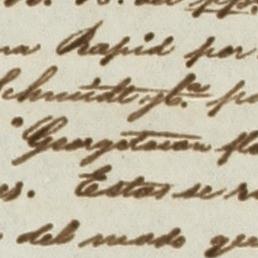 Rapid por
Schmidt jr.ª
"Georgetown
es. Estas se
del modo que